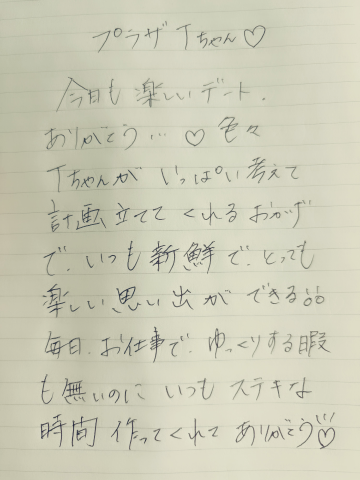 プラザTちゃん♡
今日も楽しいデート.
ありがとう... ♡ 色々
Tちゃんが いっぱい考えて
計画立ててくれるおかげ
で、いつも新鮮で、とっても
楽しい思い出ができる
毎日、お仕事で、ゆっくりする暇
も無いのに いつもステキな
時間 作ってくれて ありがとう♡